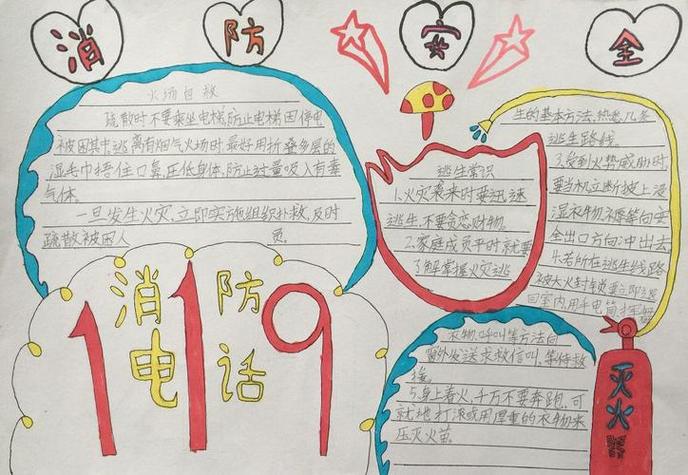 消防安全
火场自救
疏散时不要乘坐电梯,防止电梯因停电
被困其中,逃离有烟气火场时,最好用折叠多层的
湿毛巾捂住口鼻,压低身体,防止过量吸入有毒
气体。
一旦发生火灾,立即实施组织扑救,及时
疏散被困人员。
消防
电话
119
逃生常识
1.火灾袭来时要迅速
逃生,不要贪恋财物。
2.家庭成员平时就要
了解掌握火灾逃
生的基本方法,熟悉几条
逃生路线。
3.受到火势威胁时,
要当机立断披上浸
湿衣物、被褥等向安
全出口方向冲出去
4.若所在逃生线路
被大火封锁要立即退
回室内,用手电筒挥舞
衣物、呼叫等方法向
窗外发送求救信叫,等待救
援。
5.身上着火,千万不要奔跑,可
就地打滚或用厚重的衣物来
压灭火苗。
灭火